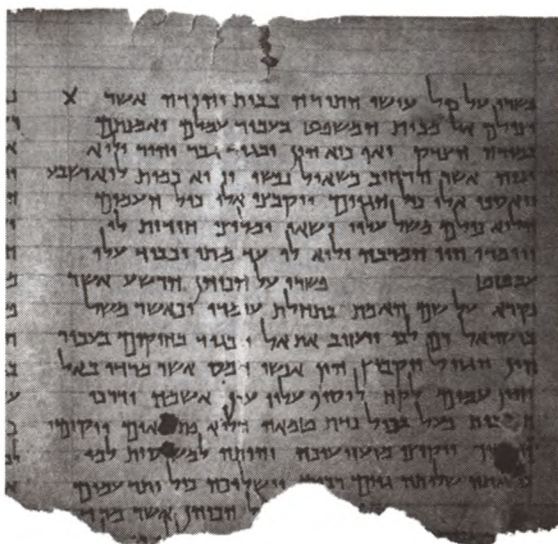 פשרו על כול עושי התורה בבית יהודה אשר X
יצילם אל מבית המשפט בעבור עמלם ואמנתם
במורה הצדק ואף כיא הון יבגוד גבר יהיר ולוא
ינוה אשר הרחיב כשאול נפשו והוא כמות לוא ישבע
ויאספו אלו כול הגוים ויקבצו אלו כול העמים
הלוא כולם משל עליו ישאו ומליצי חידות לו
ויומרו הוי המרבה ולוא לו עד מתי יכביד עלו
עבטט פשרו על הכוהן הרשע אשר
נקרא על שם האמת בתחלת עומדו וכאשר משל
בישראל רם לבו ויעזוב את אל ויבגוד בחוקים בעבור
הון ויגזול ויקבוץ הון אנשי חמס אשר מרדו באל
והון עמים לקח לוסיף עליו עון אשמה ודרכי
פעל בכול נדת טמאה הלוא ויקומו
ויקיצו מזעזיעיכה והיתה למשיסות למו
אתה שלותה גוים רבים וישלוכה כול יתר עמים
הכוהן אשר מרד